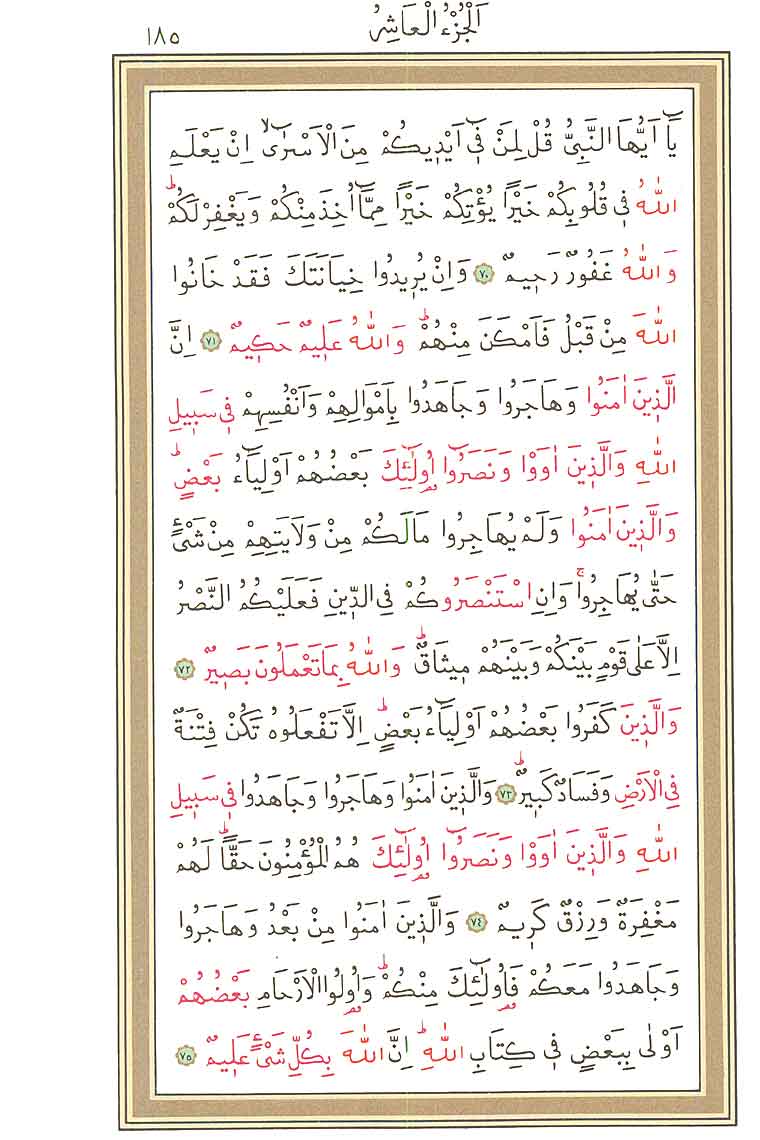 اَلْجُزْءُ الْعَاشِرُ
١٨٥
يَٓا اَيُّهَا النَّبِىُّ قُلْ لِمَنْ فٖٓى اَيْدٖيكُمْ مِنَ الْاَسْرٰىۙ اِنْ يَعْلَمِ
اللّٰهُ فٖى قُلُوبِكُمْ خَيْرًا يُؤْتِكُمْ خَيْرًا مِمَّٓا اُخِذَ مِنْكُمْ وَيَغْفِرْ لَكُمْۜ
وَاللّٰهُ غَفُورٌ رَحٖيمٌ ﴿٧٠﴾ وَاِنْ يُرٖيدُوا خِيَانَتَكَ فَقَدْ خَانُوا
اللّٰهَ مِنْ قَبْلُ فَاَمْكَنَ مِنْهُمْۜ وَاللّٰهُ عَلٖيمٌ حَكٖيمٌ ﴿٧١﴾ اِنَّ
الَّذٖينَ اٰمَنُوا وَهَاجَرُوا وَجَاهَدُوا بِاَمْوَالِهِمْ وَاَنْفُسِهِمْ فٖى سَبٖيلِ
اللّٰهِ وَالَّذٖينَ اٰوَوْا وَنَصَرُٓوا اُو۬لٰٓئِكَ بَعْضُهُمْ اَوْلِيَٓاءُ بَعْضٍۜ
وَالَّذٖينَ اٰمَنُوا وَلَمْ يُهَاجِرُوا مَالَكُمْ مِنْ وَلَايَتِهِمْ مِنْ شَىْءٍ
حَتّٰى يُهَاجِرُواۚ وَاِنِ اسْتَنْصَرُوكُمْ فِى الدّٖينِ فَعَلَيْكُمُ النَّصْرُ
اِلَّا عَلٰى قَوْمٍ بَيْنَكُمْ وَبَيْنَهُمْ مٖيثَاقٌۜ وَاللّٰهُ بِمَا تَعْمَلُونَ بَصٖيرٌ ﴿٧٢﴾
وَالَّذٖينَ كَفَرُوا بَعْضُهُمْ اَوْلِيَٓاءُ بَعْضٍۜ اِلَّا تَفْعَلُوهُ تَكُنْ فِتْنَةٌ
فِى الْاَرْضِ وَفَسَادٌ كَبٖيرٌۜ ﴿٧٣﴾ وَالَّذٖينَ اٰمَنُوا وَهَاجَرُوا وَجَاهَدُوا فٖى سَبٖيلِ
اللّٰهِ وَالَّذٖينَ اٰوَوْا وَنَصَرُٓوا اُو۬لٰٓئِكَ هُمُ الْمُؤْمِنُونَ حَقًّاۜ لَهُمْ
مَغْفِرَةٌ وَرِزْقٌ كَرٖيمٌ ﴿٧٤﴾ وَالَّذٖينَ اٰمَنُوا مِنْ بَعْدُ وَهَاجَرُوا
وَجَاهَدُوا مَعَكُمْ فَاُو۬لٰٓئِكَ مِنْكُمْۜ وَاُو۬لُوا الْاَرْحَامِ بَعْضُهُمْ
اَوْلٰى بِبَعْضٍ فٖى كِتَابِ اللّٰهِۜ اِنَّ اللّٰهَ بِكُلِّ شَىْءٍ عَلٖيمٌ ﴿٧٥﴾